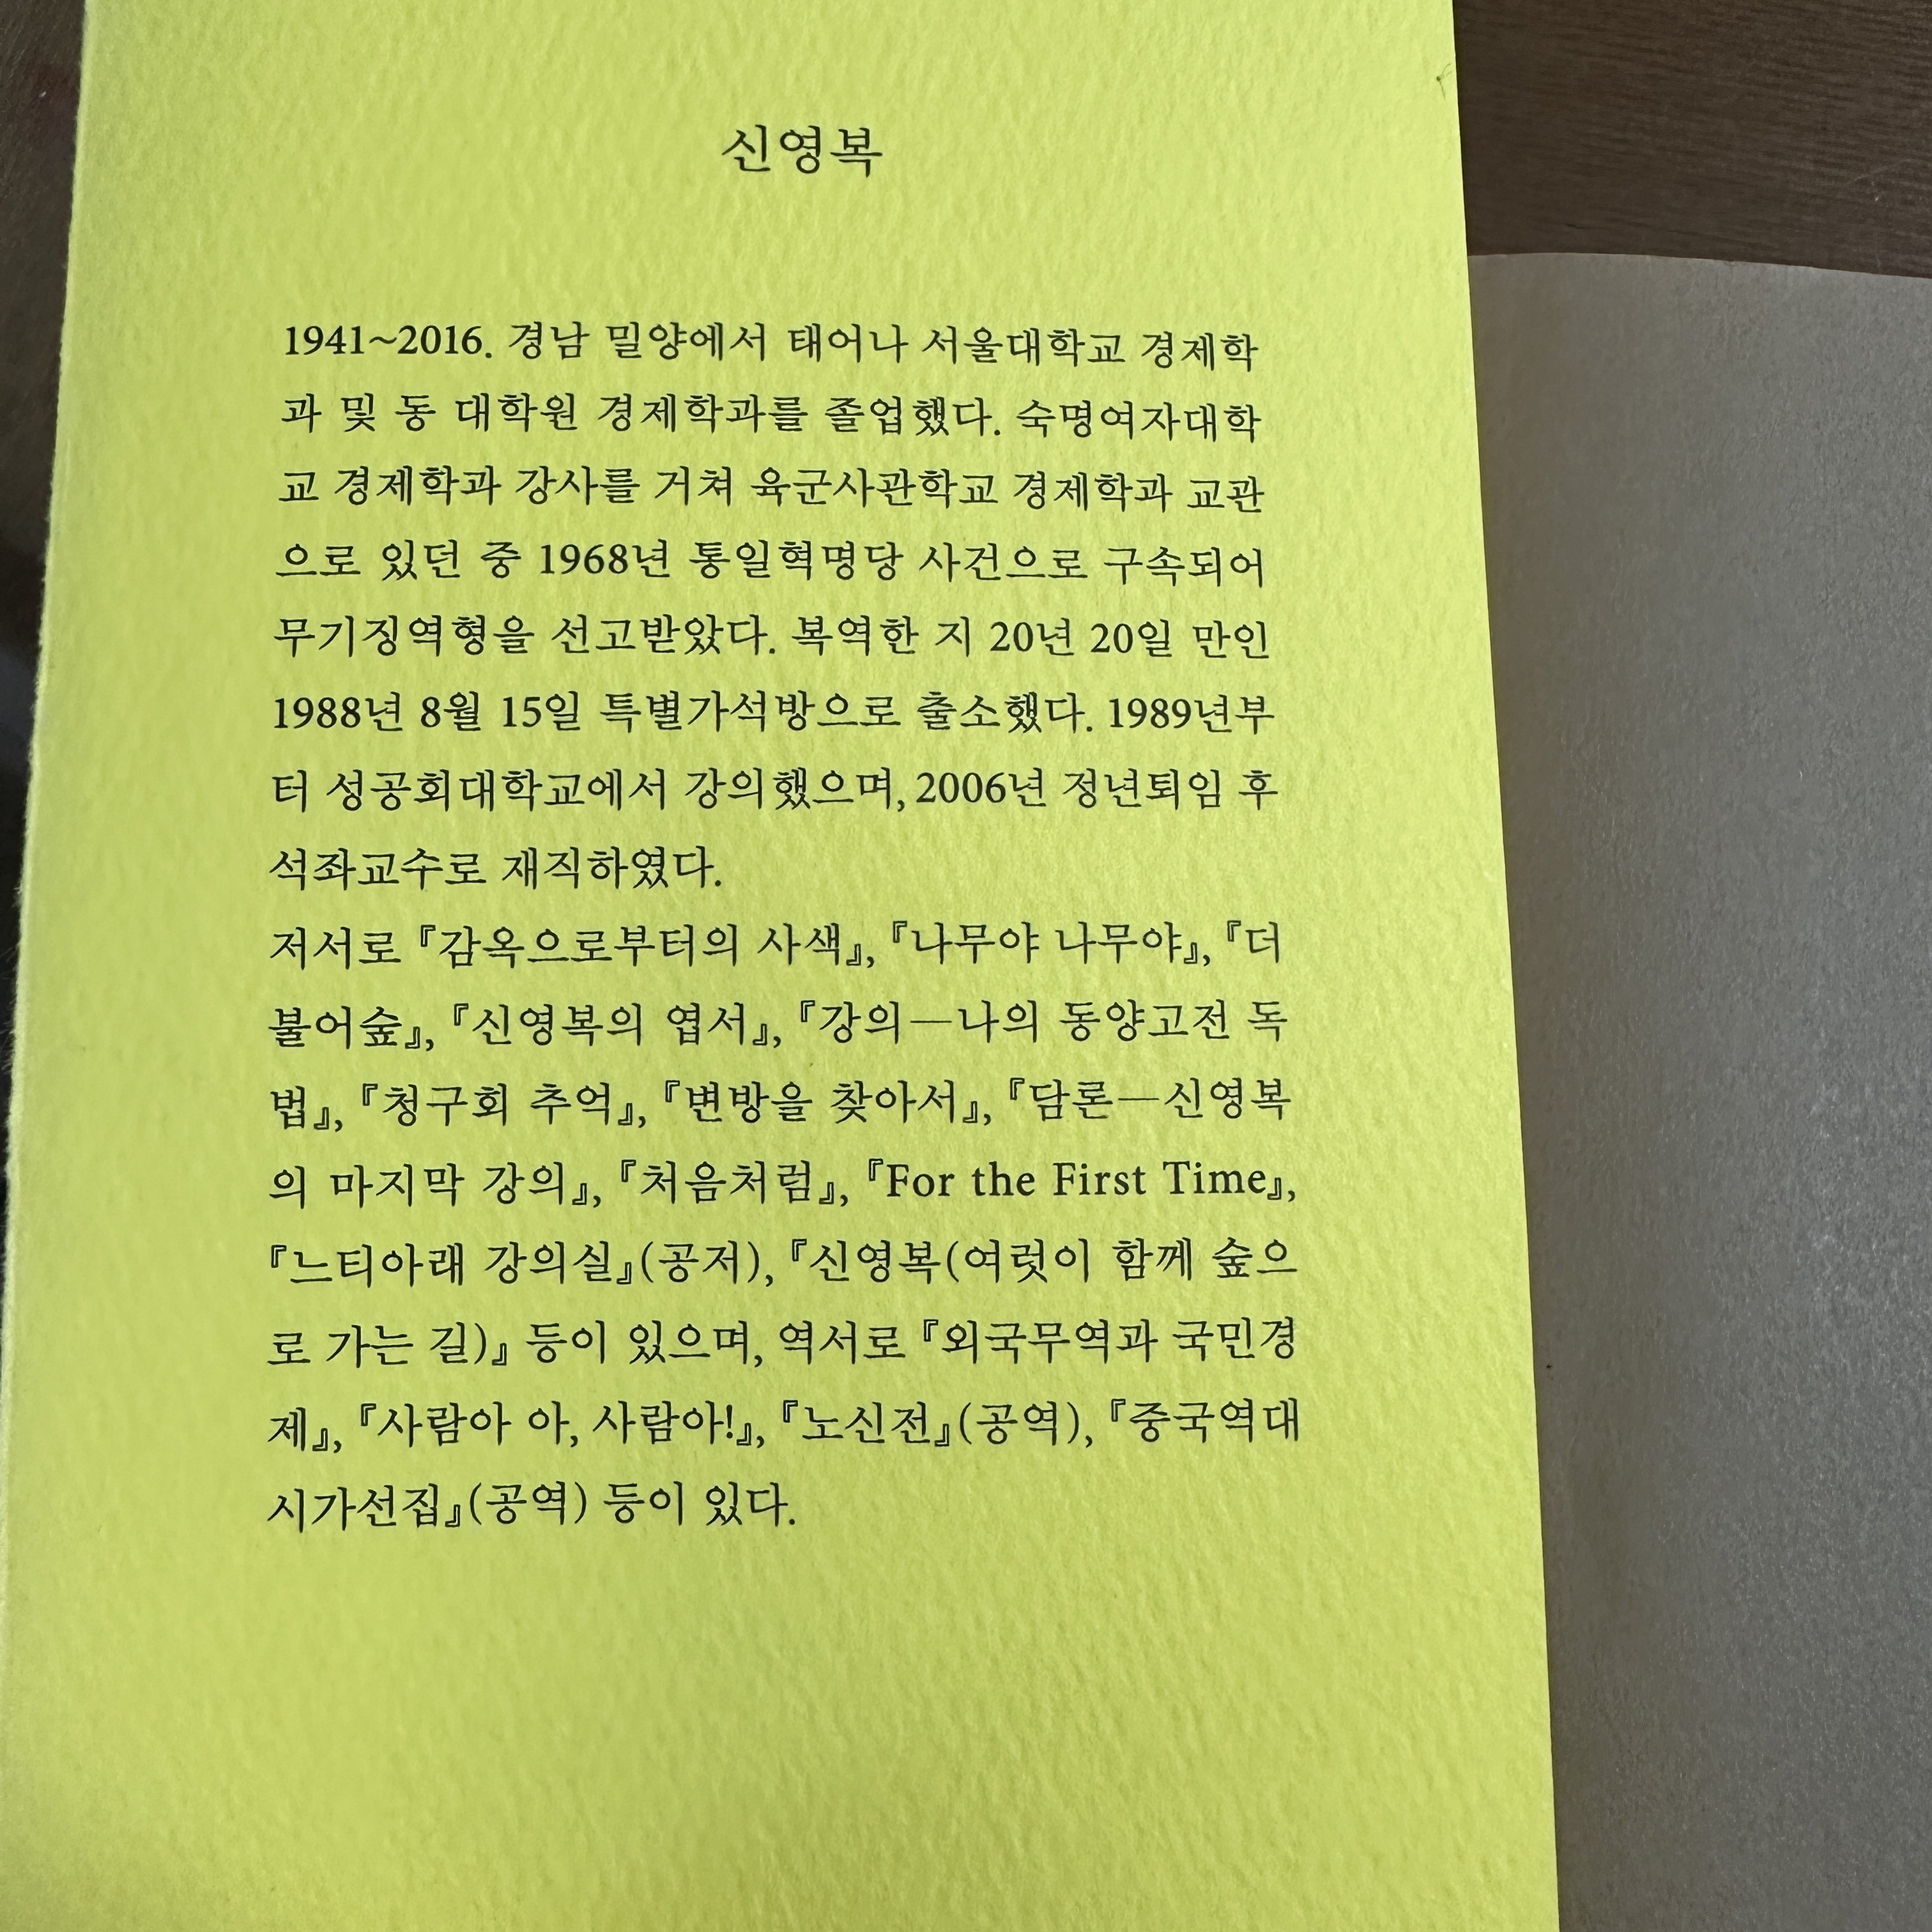 신영복
1941~2016. 경남 밀양에서 태어나 서울대학교 경제학
과 및 동 대학원 경제학과를 졸업했다. 숙명여자대학
교 경제학과 강사를 거쳐 육군사관학교 경제학과 교관
으로 있던 중 1968년 통일혁명당 사건으로 구속되어
무기징역형을 선고받았다. 복역한 지 20년 20일 만인
1988년 8월 15일 특별가석방으로 출소했다. 1989년부
터 성공회대학교에서 강의했으며, 2006년 정년퇴임 후
석좌교수로 재직하였다.
저서로 『감옥으로부터의 사색』, 『나무야 나무야』, 『더
불어숲』, 『신영복의 엽서』, 『강의―나의 동양고전 독
법』, 『청구회 추억』, 『변방을 찾아서』, 『담론―신영복
의 마지막 강의』, 『처음처럼』, 『For the First Time』,
『느티아래 강의실』(공저), 『신영복(여럿이 함께 숲으
로 가는 길)』 등이 있으며, 역서로 『외국무역과 국민경
제』, 『사람아 아, 사람아!』, 『노신전』(공역), 『중국역대
시가선집』(공역) 등이 있다.